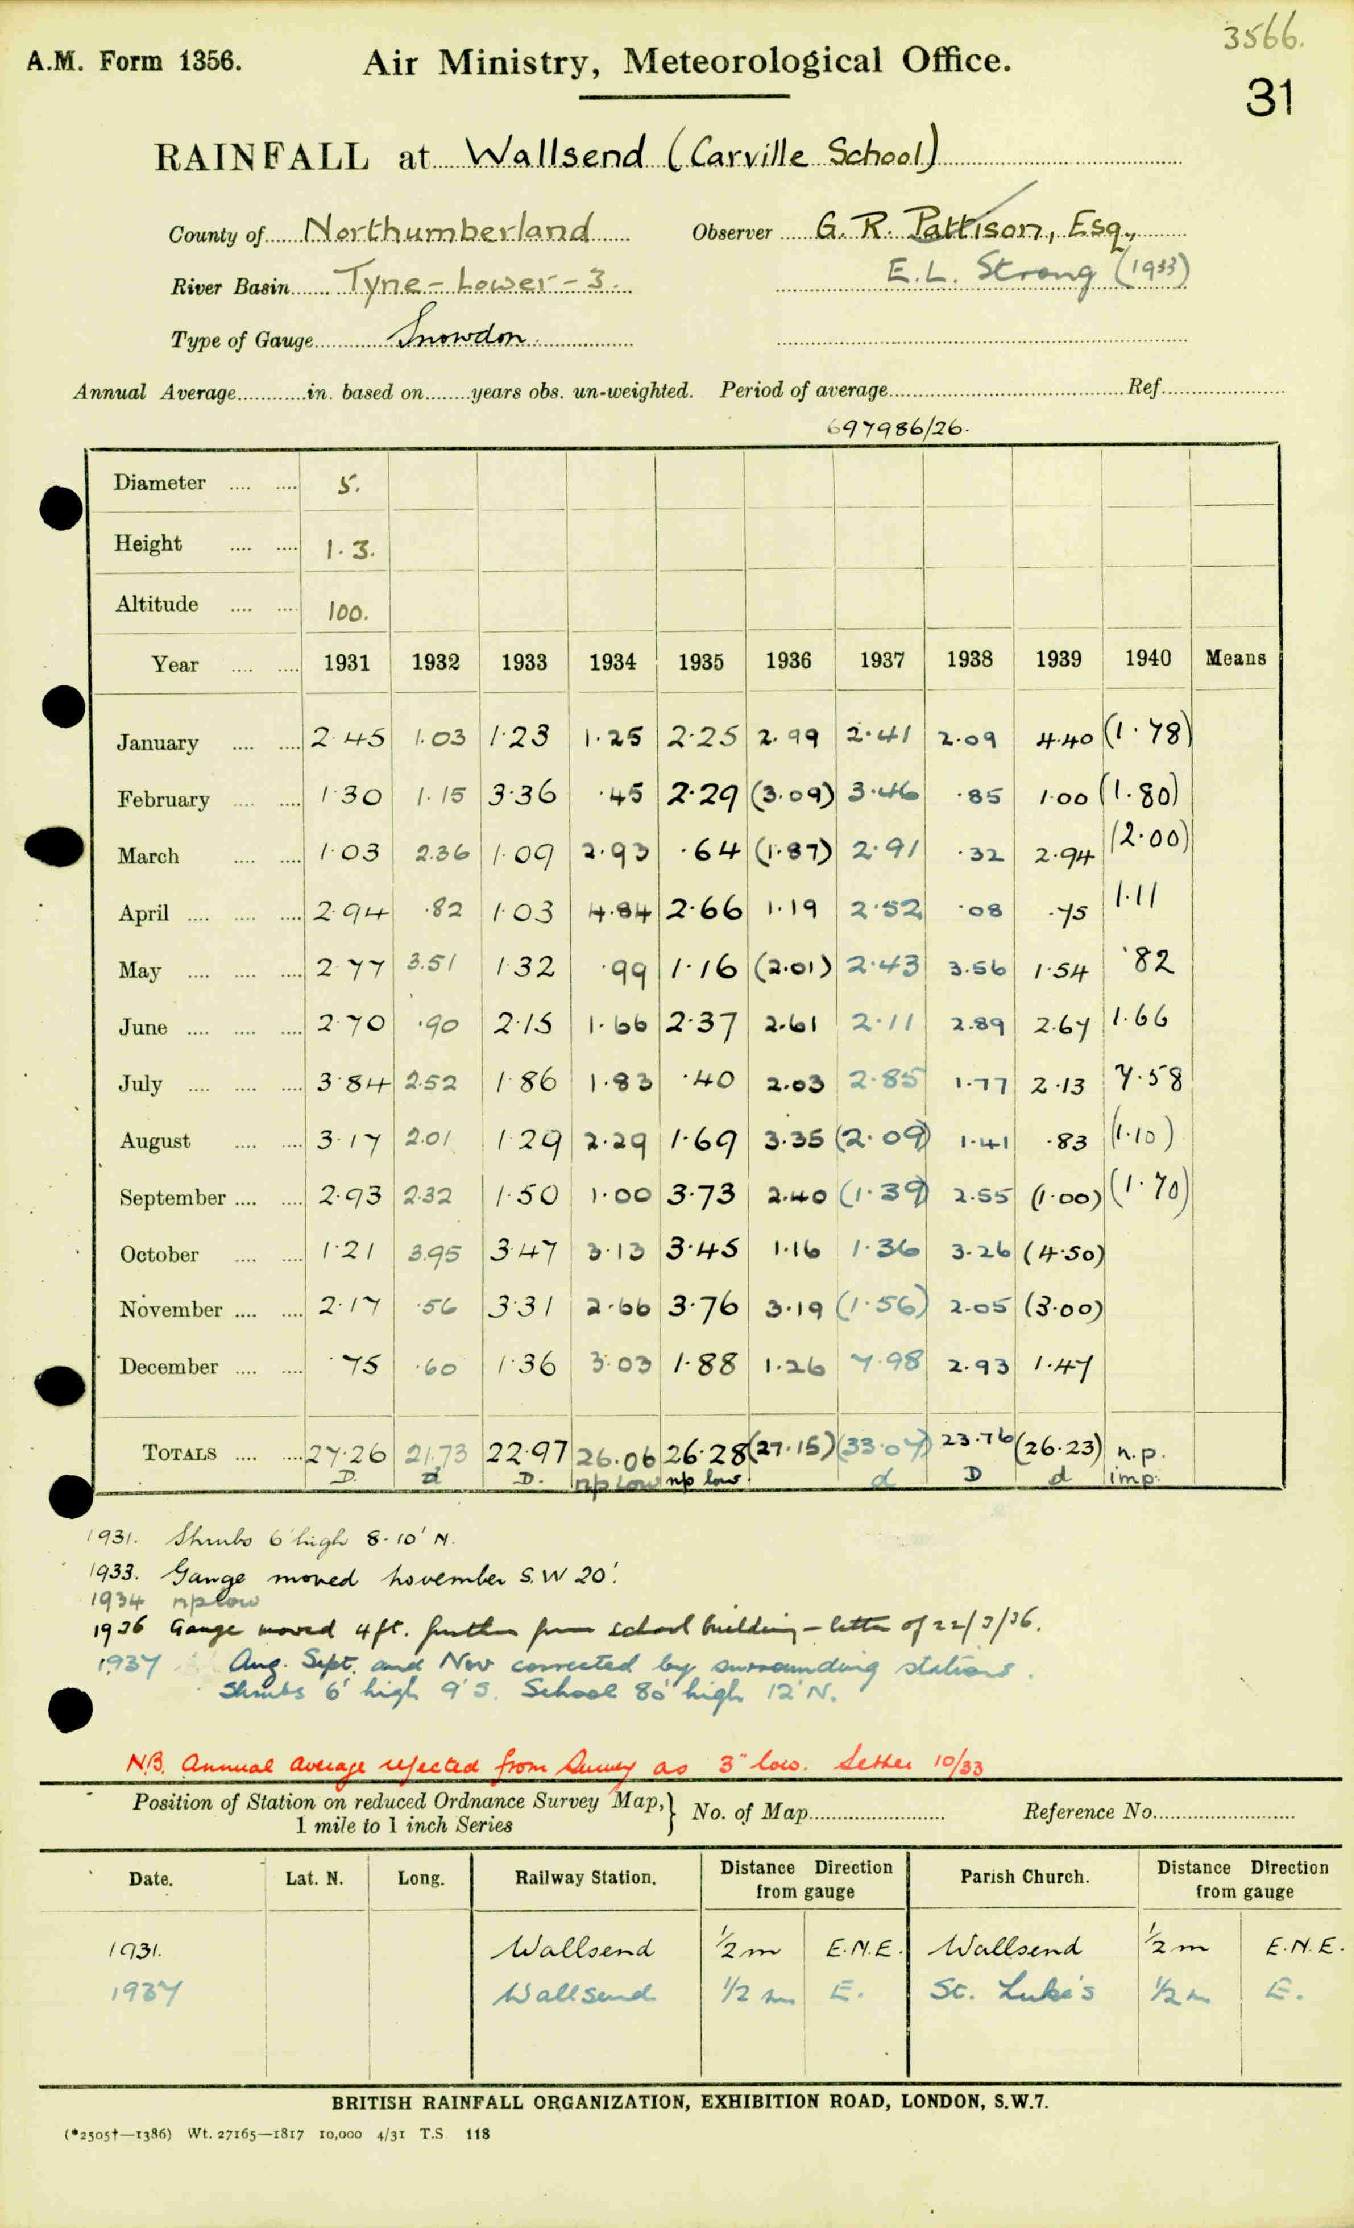 3566.
A.M. Form 1356. Air Ministry, Meteorological Office.
31
RAINFALL at Wallsend (Carville School)
County of Northumberland Observer G. R. Pattison, Esq.,
River Basin Tyne - Lower - 3. E.L. Strong (1933)
Type of Gauge Snowdon
Annual Average in. based on years obs. un-weighted. Period of average Ref.
697986/26.
Diameter 5.
Height 1.3.
Altitude 100.
Year 1931 1932 1933 1934 1935 1936 1937 1938 1939 1940 Means
January 2.45 1.03 1.23 1.25 2.25 2.99 2.41 2.09 4.40 (1.78)
February 1.30 1.15 3.36 .45 2.29 (3.09) 3.46 .85 1.00 (1.80)
March 1.03 2.36 1.09 2.93 .64 (1.87) 2.91 .32 2.94 (2.00)
April 2.94 .82 1.03 4.84 2.66 1.19 2.52 .08 .75 1.11
May 2.77 3.51 1.32 .99 1.16 (2.01) 2.43 3.56 1.54 .82
June 2.70 .90 2.15 1.66 2.37 2.61 2.11 2.89 2.67 1.66
July 3.84 2.52 1.86 1.83 .40 2.03 2.85 1.77 2.13 7.58
August 3.17 2.01 1.29 2.29 1.69 3.35 (2.09) 1.41 .83 (1.10)
September 2.93 2.32 1.50 1.00 3.73 2.40 (1.39) 2.55 (1.00) (1.70)
October 1.21 3.95 3.47 3.13 3.45 1.16 1.36 3.26 (4.50)
November 2.17 .56 3.31 2.66 3.76 3.19 (1.56) 2.05 (3.00)
December .75 .60 1.36 3.03 1.88 1.26 7.98 2.93 1.47
TOTALS 27.26 21.73 22.97 26.06 26.28 (27.15) (33.07) 23.76 (26.23) n.p.
D d D. np low np low d D d imp.
1931. Shrubs 6' high 8-10' N.
1933. Gauge moved November S.W 20'.
1934 np low
1936 Gauge moved 4ft. further from school building - letter of 22/3/36.
1937 Aug. Sept. and Nov corrected by surrounding stations.
Shrubs 6' high 9' S. School 80' high 12' N.
N.B. Annual average rejected from Survey as 3" low. Letter 10/33
Position of Station on reduced Ordnance Survey Map, 1 mile to 1 inch Series } No. of Map Reference No.
Date. Lat. N. Long. Railway Station. Distance Direction from gauge Parish Church. Distance Direction from gauge
1931. Wallsend 1/2 m E.N.E. Wallsend 1/2 m E.N.E.
1937 Wallsend 1/2 m E. St. Luke's 1/2 m E.
BRITISH RAINFALL ORGANIZATION, EXHIBITION ROAD, LONDON, S.W.7.
(*2505†—1386) Wt. 27165—1817 10,000 4/31 T.S 118